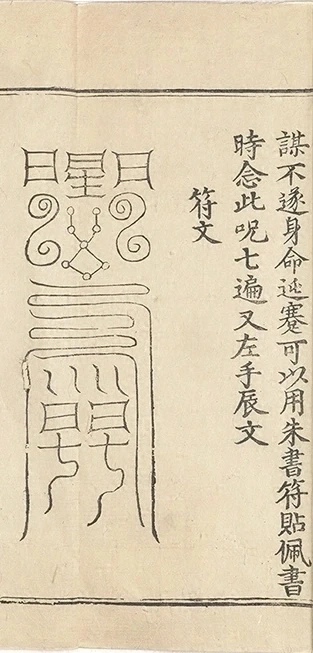 謀不遂身命迍蹇可以用朱書符貼佩書
時念此呪七遍又左手辰文
符文
日星日